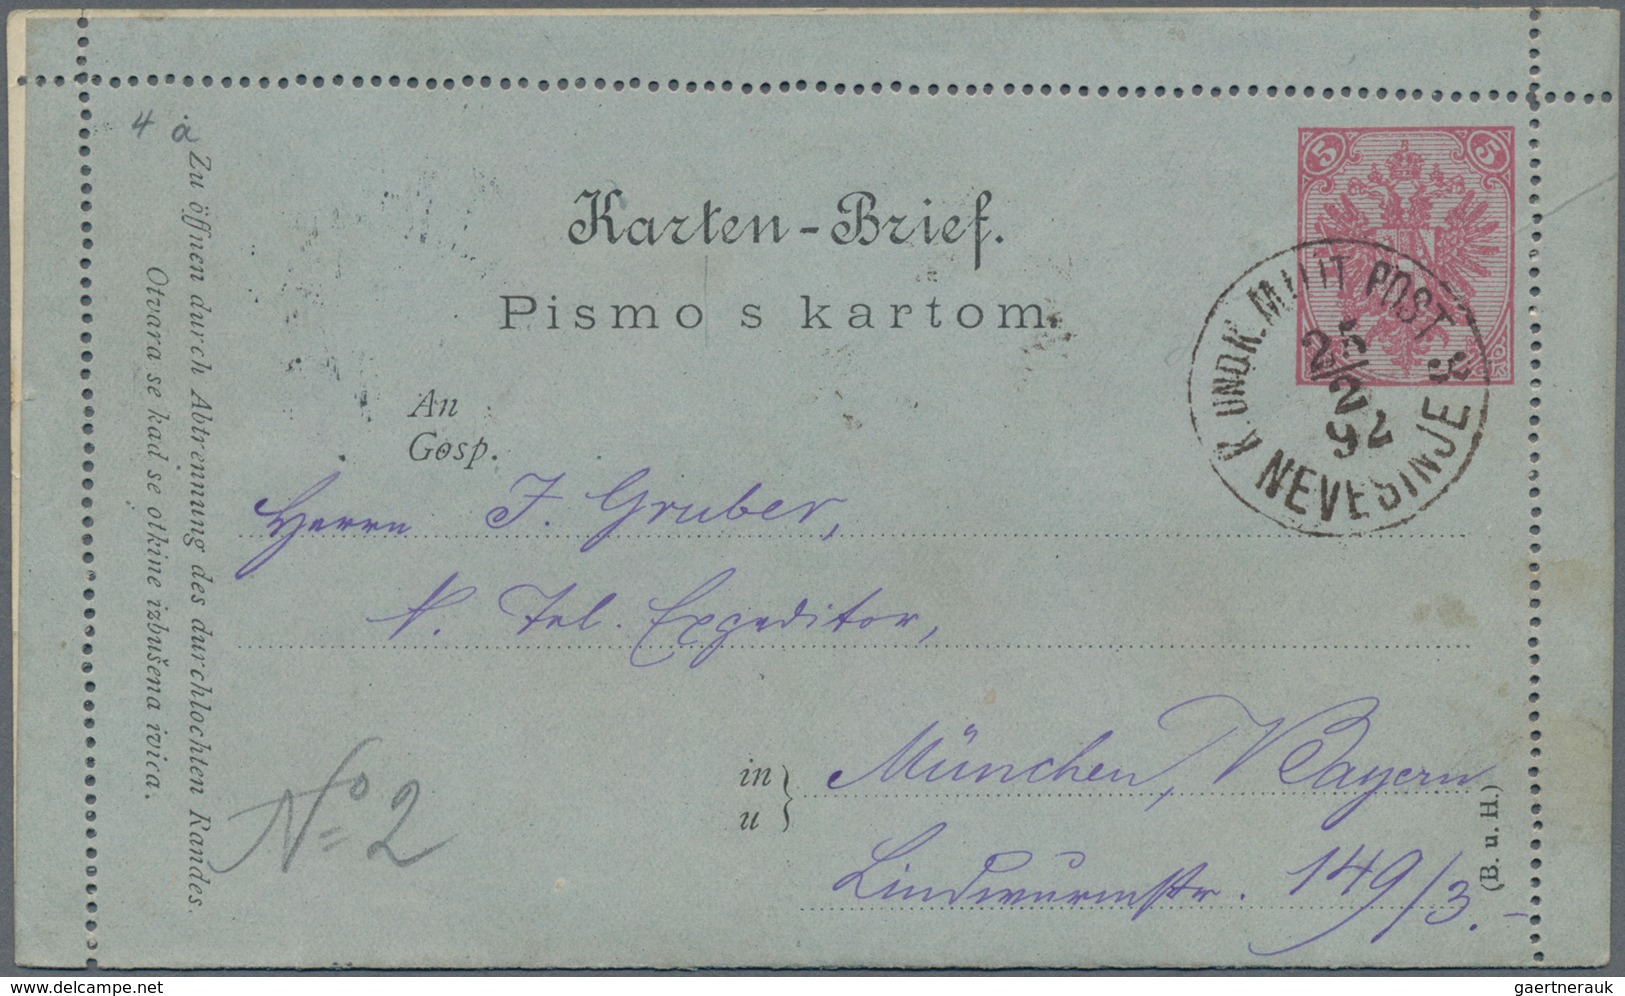 4 a
Zu öffnen durch Abtrennung des durchlochten Randes.
Otvara se kad se otkine izbušena ivica.
Karten-Brief.
Pismo s kartom.
5 5
K. UND K. MILIT POST 3
25/2
92
NEVESINJE
An
Gosp.
Herrn J. Gruber,
Tel. Expeditor,
in
u
München, Bayern
Lindwurmstr. 149/3.
(B. u. H.)
No 2
delcampe.net
gaertnerauk